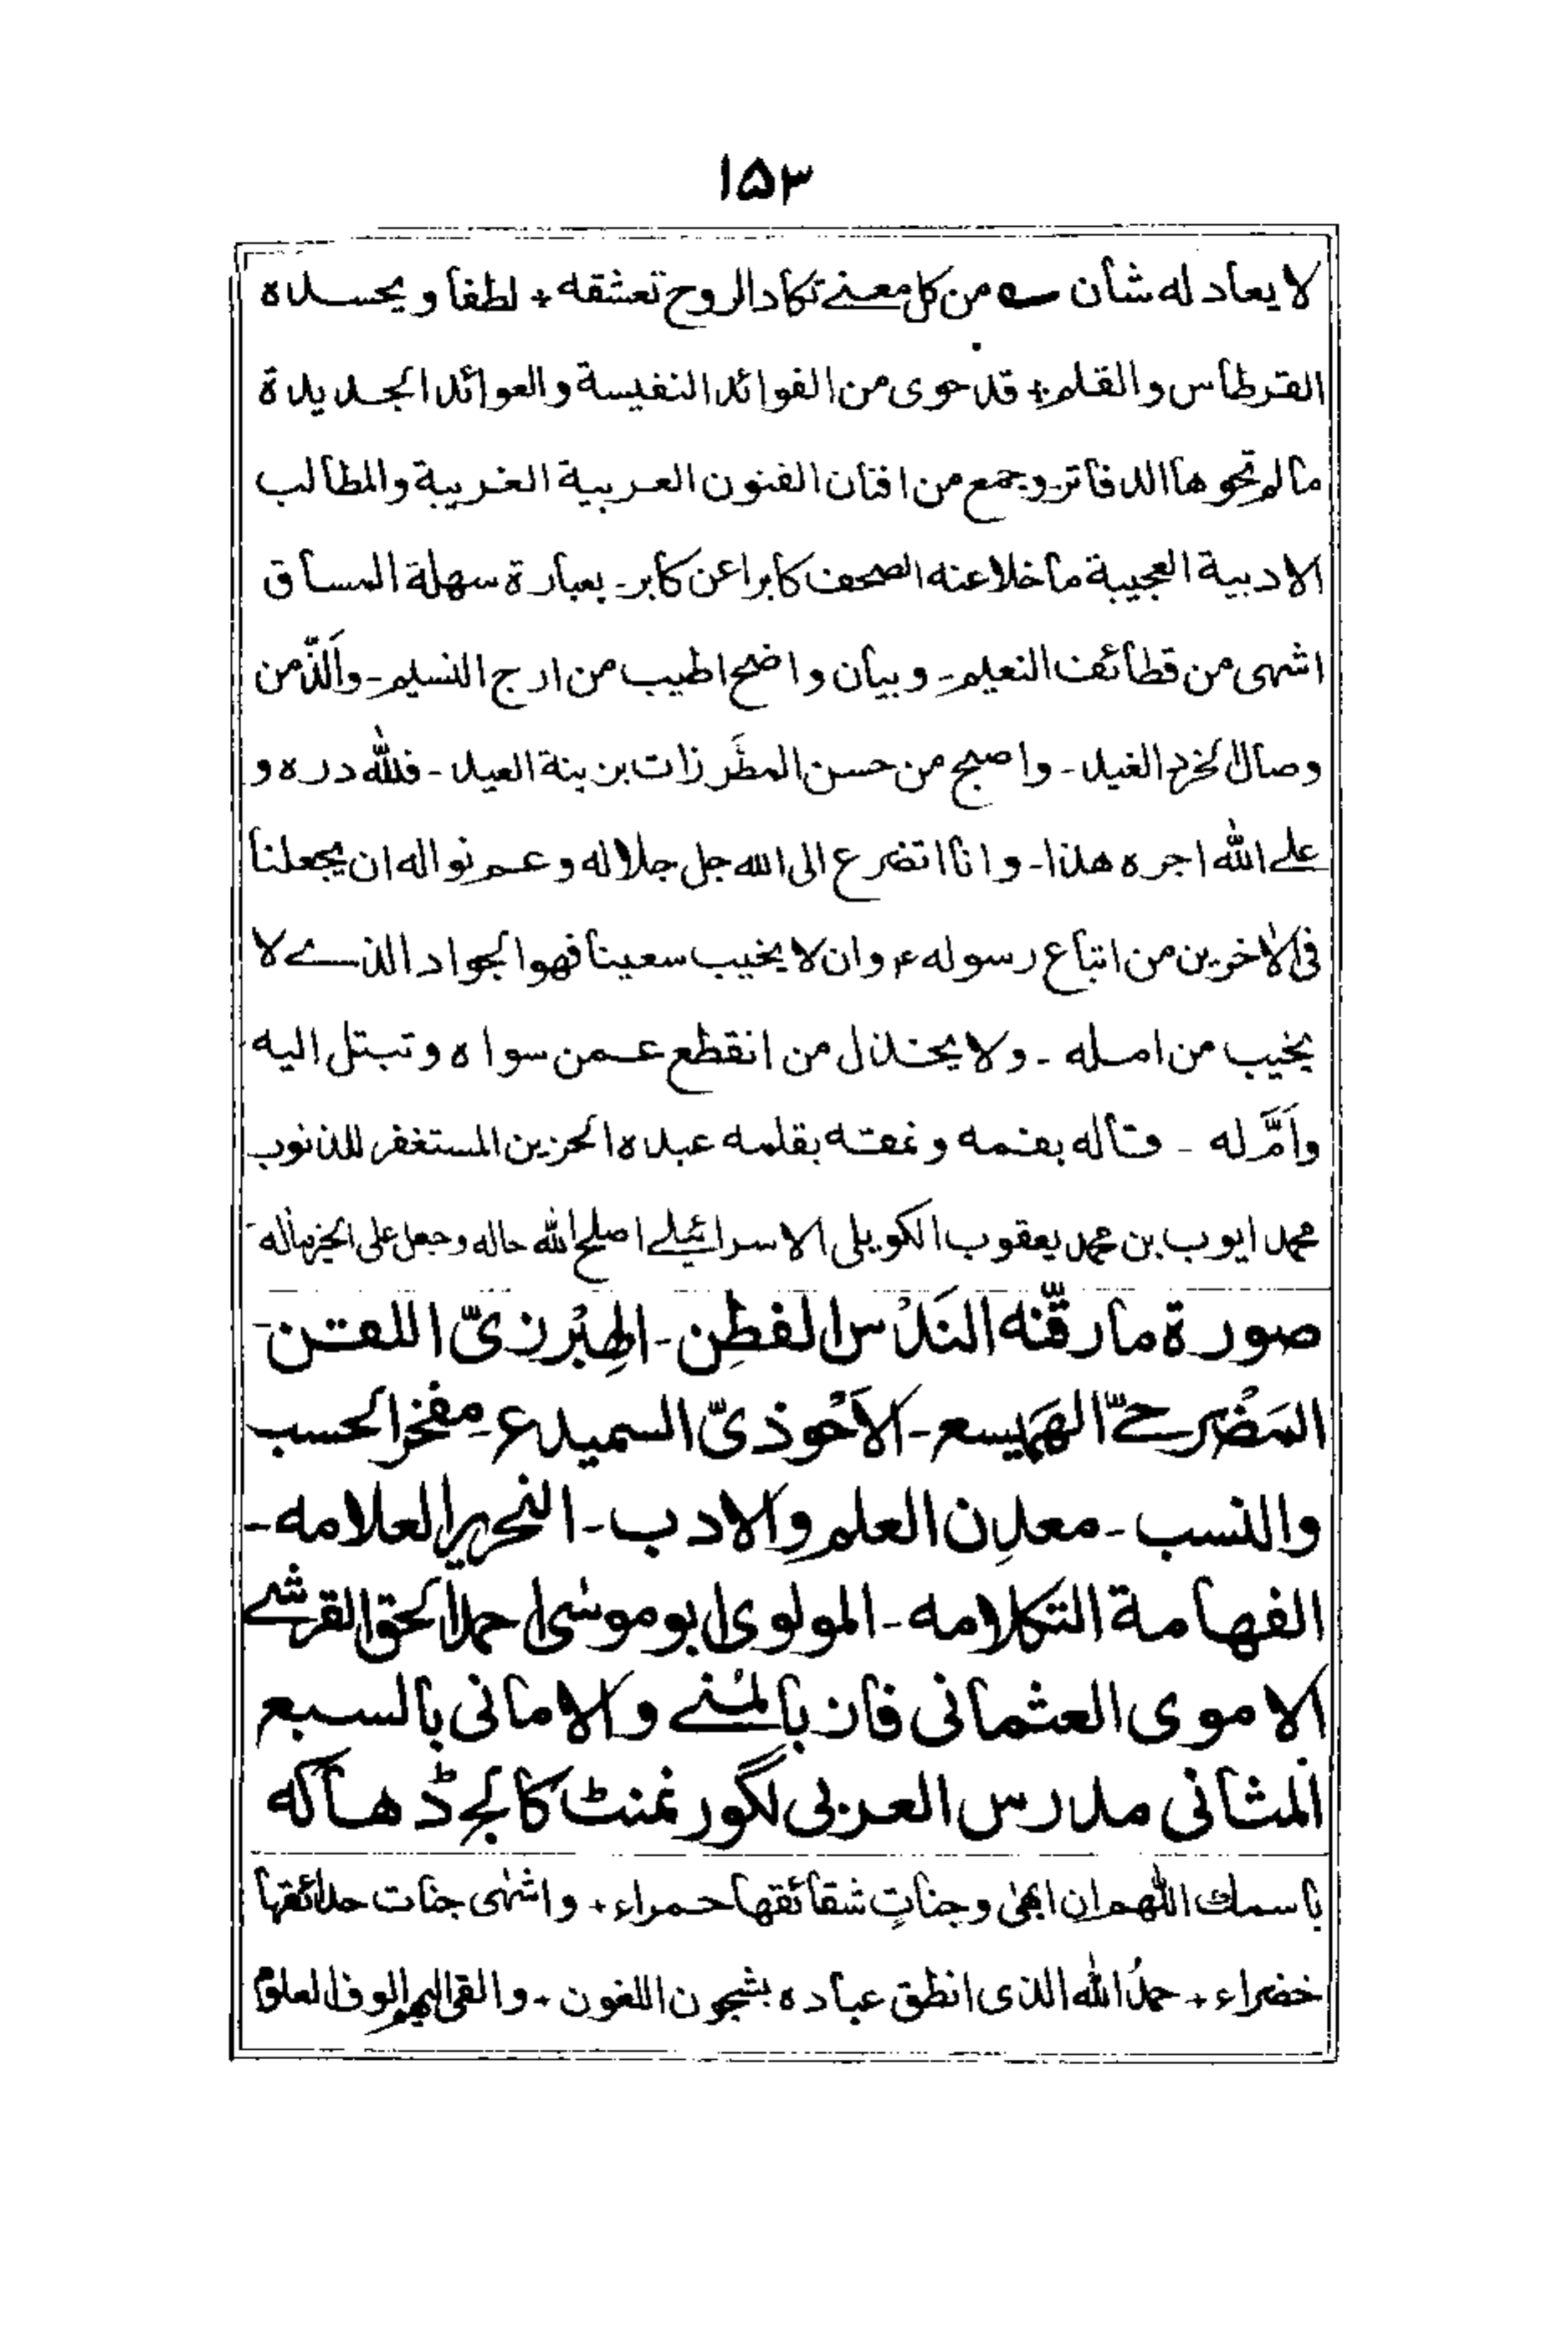 ١٥٣
لا يعادله شأن ـه من كل معنے تكاد الروح تعشقه + لطفا ويحسده
القرطاس والقلم + قد حوى من الفوائد النفيسة والعوائد الجديدة
مالم تحوها الدفاتر وجمع من افنان الفنون العربية الغريبة والمطالب
الادبية العجيبة ما خلا عنه الصحف كابرا عن كابر ـ بعبارة سهلة المساق
اشهى من قطائف النعيم ـ وبيان واضح اطيب من ارج النسيم ـ وألذّ من
وصال الخرد الغيد ـ واصبح من حسن المطَرزات بزينة العيد ـ فلله دره و
علے الله اجره هذا ـ وانا اتضرع الى الله جل جلاله وعم نواله ان يجعلنا
فى الاخرين من اتباع رسوله ؐ وان لا يخيب سعينا فهو الجواد الذے لا
يخيب من امله ـ ولا يخذل من انقطع عمن سواه وتبتل اليه
وأمَّ له ـ قاله بفمه ونمقه بقلمه عبده الحزين المستغفر للذنوب
محمد ايوب بن محمد يعقوب الكويلى الاسرائيلے اصلح الله حاله وجعل على الخير مآله
صورة ما رقّنه النَدْس الفطِن ـ الهِبْرزىّ اللقن
المَضْرحےّ الهَمَيسع ـ الاَحْوذىّ السميدع ـ مِفخر الحسب
والنسب ـ معدِن العلم والادب ـ النحرير العلامه ـ
الفهامة التكلامه ـ المولوى ابو موسٰى احمد الحق القرشے
الاموى العثمانى فاز بالمُنے والامانى بالسبع
المثانى مدرس العربى لگورنمنٹ كالج ڈهاكه
باسمك اللهم ان ابهٰى وجناتٍ شقائقها حمراء + واشهٰى جنات حدائقها
خضراء + حمدُ الله الذى انطق عباده بشجون اللغون + والقى اليهم الوف العلوم